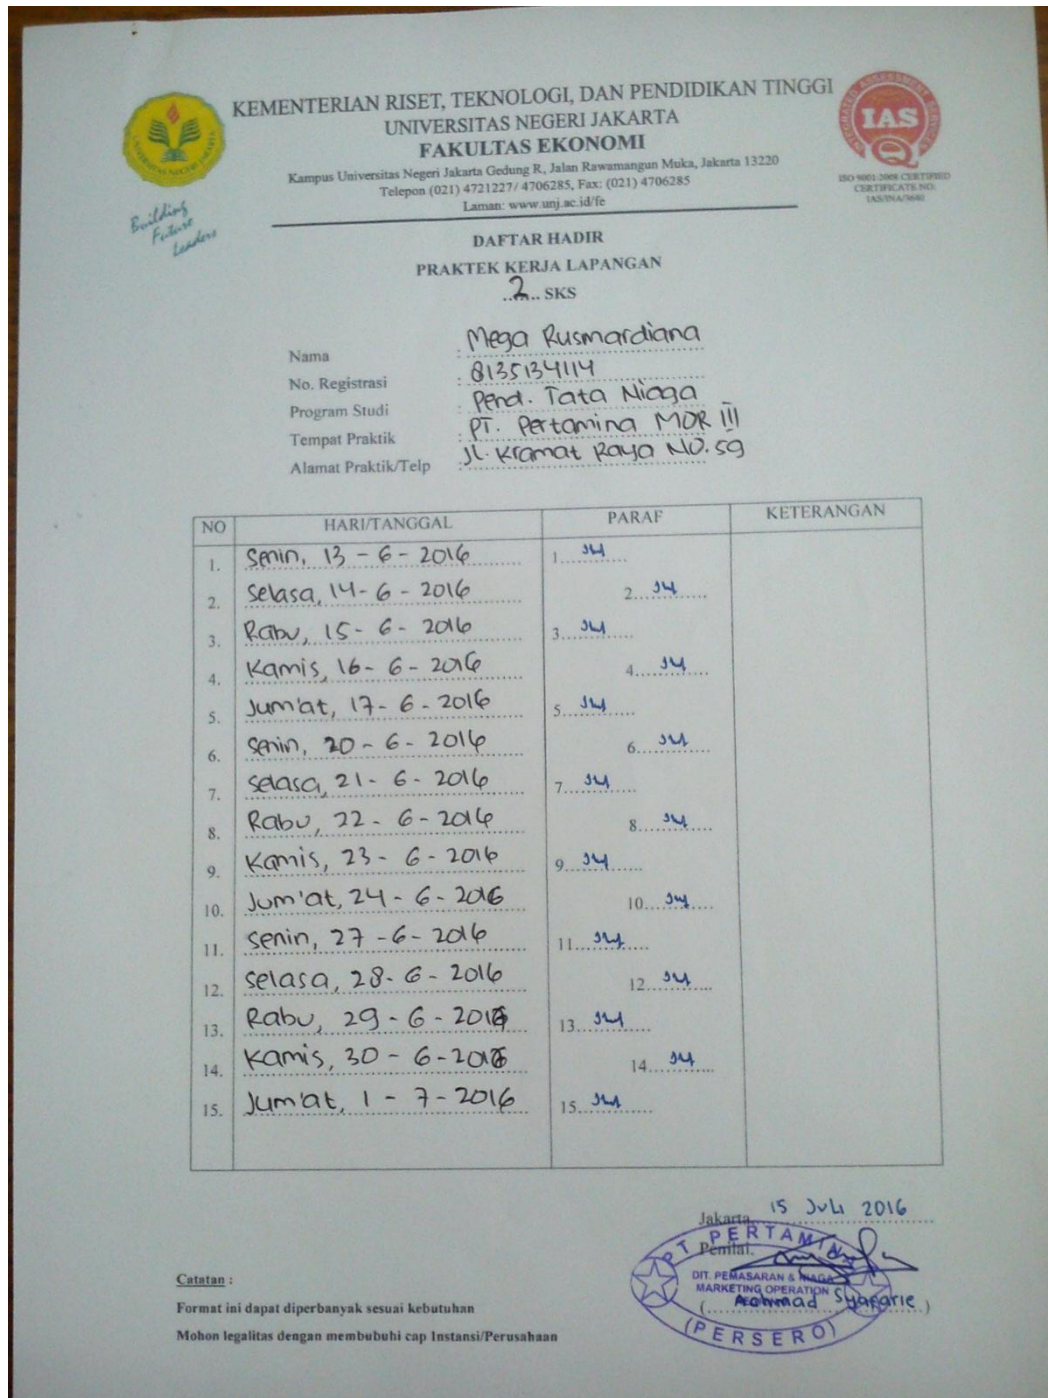 KEMENTERIAN RISET, TEKNOLOGI, DAN PENDIDIKAN TINGGI
UNIVERSITAS NEGERI JAKARTA
FAKULTAS EKONOMI
Kampus Universitas Negeri Jakarta Gedung R, Jalan Rawamangun Muka, Jakarta 13220
Telepon (021) 4721227/ 4706285, Fax: (021) 4706285
Laman: www.unj.ac.id/fe
UNIVERSITAS NEGERI JAKARTA
Building
Future
Leaders
INTEGRATED ASSESSMENT SERVICES
IAS
ISO 9001:2008 CERTIFIED
CERTIFICATE NO:
DAFTAR HADIR
PRAKTEK KERJA LAPANGAN
..2.. SKS
Nama : Mega Rusmardiana
No. Registrasi : 8135134114
Program Studi : Pend. Tata Niaga
Tempat Praktik : PT. Pertamina MOR III
Alamat Praktik/Telp : Jl. Kramat Raya NO. 59
NO HARI/TANGGAL PARAF KETERANGAN
1. Senin, 13 - 6 - 2016 1.
2. Selasa, 14 - 6 - 2016 2.
3. Rabu, 15 - 6 - 2016 3.
4. Kamis, 16 - 6 - 2016 4.
5. Jum'at, 17 - 6 - 2016 5.
6. Senin, 20 - 6 - 2016 6.
7. Selasa, 21 - 6 - 2016 7.
8. Rabu, 22 - 6 - 2016 8.
9. Kamis, 23 - 6 - 2016 9.
10. Jum'at, 24 - 6 - 2016 10.
11. Senin, 27 - 6 - 2016 11.
12. Selasa, 28 - 6 - 2016 12.
13. Rabu, 29 - 6 - 2016 13.
14. Kamis, 30 - 6 - 2016 14.
15. Jum'at, 1 - 7 - 2016 15.
Jakarta, 15 Juli 2016
Penilai,
PT PERTAMINA
DIT. PEMASARAN & NIAGA
MARKETING OPERATION
(PERSERO)
( Achmad Syafarie )
Catatan :
Format ini dapat diperbanyak sesuai kebutuhan
Mohon legalitas dengan membubuhi cap Instansi/Perusahaan